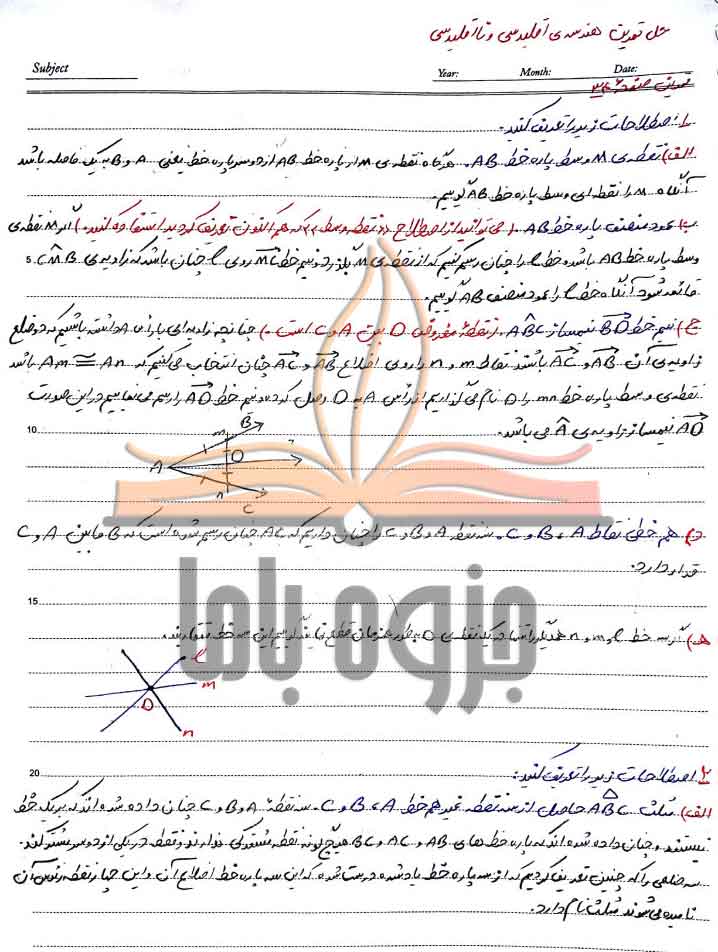 حل تمرین هندسه ی اقلیدسی و نااقلیدسی
Subject
Year: Month: Date:
تمرین صفحه ۳۶
۱. اصطلاحات زیر را تعریف کنید.
الف) نقطه ی M وسط پاره خط AB. هرگاه نقطه ی M از پاره خط AB از دو سر پاره خط یعنی A و B به یک فاصله باشد
آنگاه M را نقطه ای وسط پاره خط AB گوییم.
ب) عمود منصف پاره خط AB. (می توانید از اصطلاح «نقطه وسط» که هم اکنون تعریف کردید استفاده کنید.) اگر M نقطه ی
5 وسط پاره خط AB باشد و خط l را چنان رسم کنیم که از نقطه ی M بگذرد نیم خط روی l چنان باشد که زاویه ی B̂M
قائمه شود آنگاه خط l را عمود منصف AB گوییم.
ج) نیم خط BD نیمساز ABC. (نقطه مفروض D بین A و C است.) چنانچه زاویه ای با رأس A داشته باشیم که دو ضلع
زاویه ی آن AB و AC باشند نقاط m و n را روی اضلاع AB و AC چنان انتخاب می کنیم که Am ≅ An باشد
نقطه ی وسط پاره خط mn را D نام می گذاریم از رأس A به D وصل کرده و نیم خط AD را رسم می نماییم در این صورت
AD نیمساز زاویه ی Â می باشد.
10
B
m
A D
n
C
د) هم خطی نقاط A، B و C. سه نقطه A و B و C را چنان داریم که AC چنان رسم شده است که B ما بین A و C
قرار دارد.
15
ه) گر سه خط l و m و n همدیگر را تنها در یک نقطه ی D به طور همزمان قطع نمایند گوییم این سه خط متقاربند.
l
m
D
n
جزوه باما
20 ۲. اصطلاحات زیر را تعریف کنید:
الف) مثلث ABC حاصل از سه نقطه غیر هم خط A، B و C. سه نقطه A و B و C چنان داده شده اند که بر یک خط
نیستند و چنان داده شده اند که پاره خط های AB و AC و BC هیچ گونه نقطه مشترکی ندارند و نقطه در یکی از دو سر مشترکند.
سه ضلعی را که چنین تعریف کردیم که از سه پاره خط یاد شده درست شده که این سه پاره خط اضلاع آن و این نقطه رئوس آن
نامیده می شوند مثلث نام دارد.